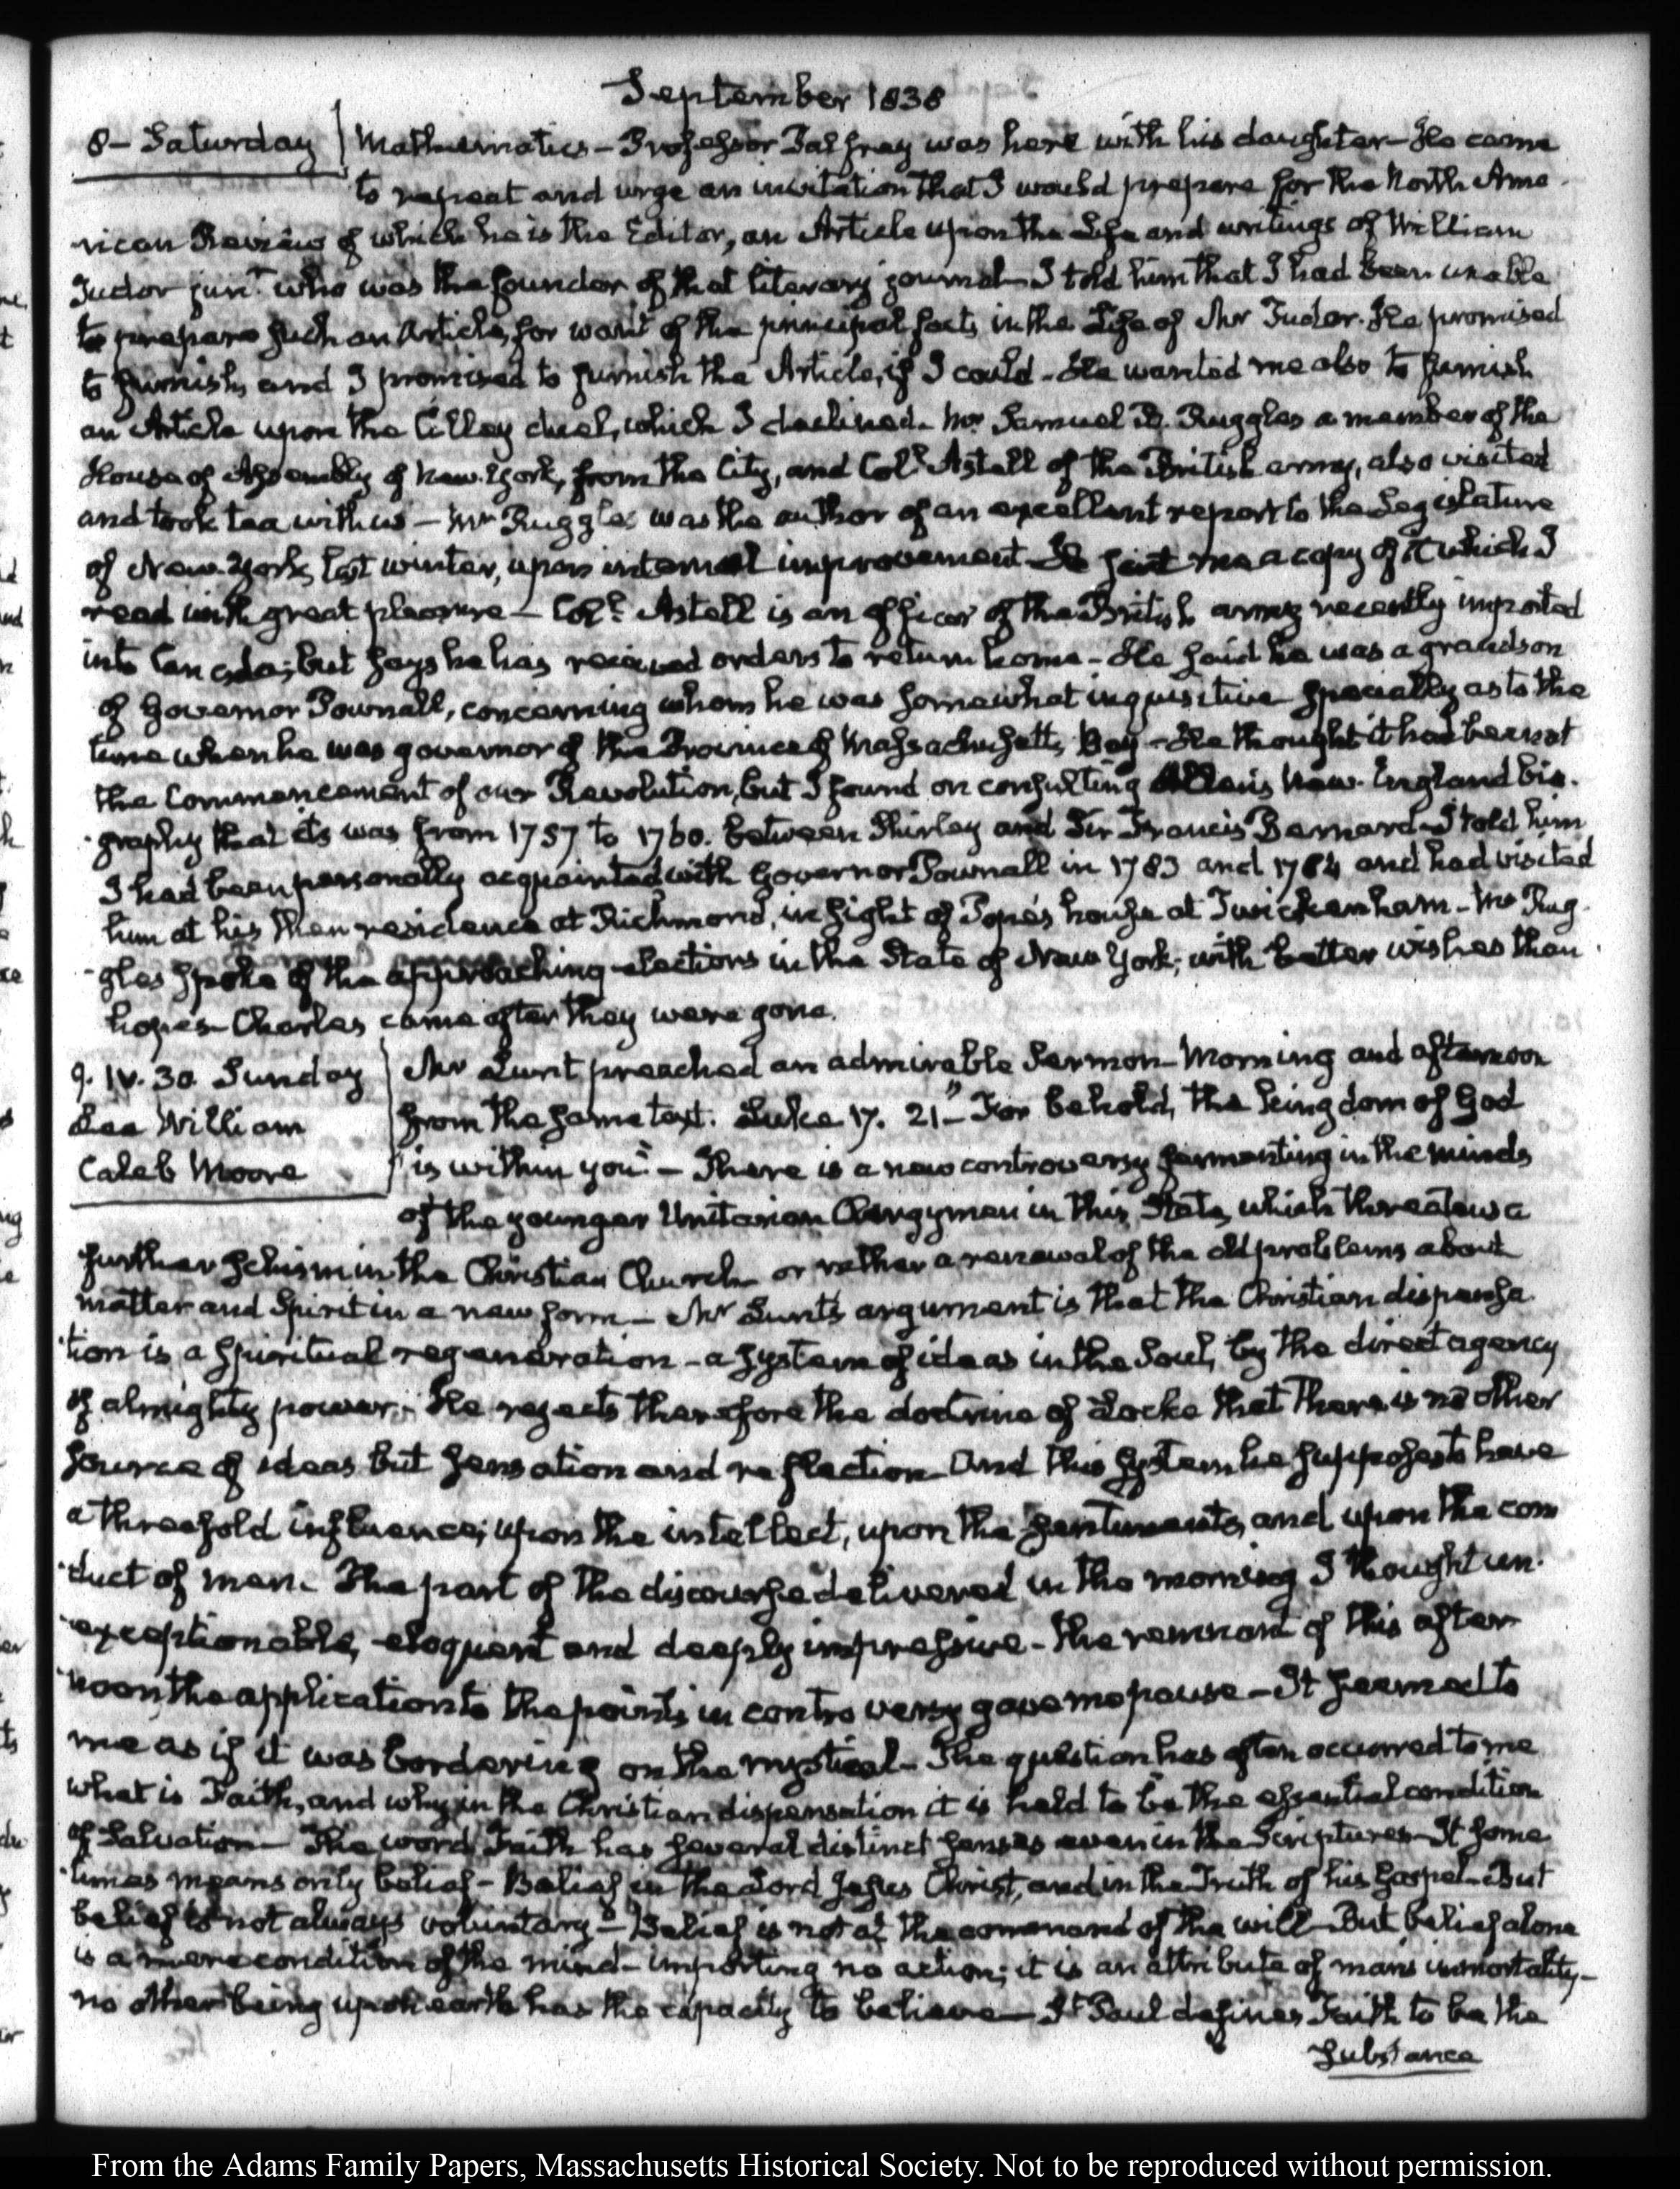 September 1838
8 - Saturday
Mathematics - Professor Palfrey was here with his daughter - He came
to repeat and urge an invitation that I would prepare for the North Ame
rican Review of which he is the Editor, an Article upon the Life and writings of William
Tudor junr. who was the founder of that literary journal - I told him that I had been unable
to prepare such an Article, for want of the principal facts in the Life of Mr Tudor. He promised
to furnish, and I promised to furnish the Article, if I could - He wanted me also to furnish
an Article upon the Cilley duel, which I declined - Mr Samuel B. Ruggles a member of the
House of Assembly of New-York, from the City, and Coll. Astell of the British army, also visited
and took tea with us - Mr Ruggles was the author of an excellent report to the Legislature
of New-York, last winter, upon internal improvement - He sent me a copy of it which I
read with great pleasure - Coll. Astell is an officer of the British army recently imported
into Canada; but says he has received orders to return home - He said he was a grandson
of Governor Pownall, concerning whom he was somewhat inquisitive specially as to the
time when he was governor of the Province of Massachusetts Bay - He thought it had been at
the Commencement of our Revolution, but I found on consulting Allen's New-England bio-
graphy that its was from 1757 to 1760. between Shirley and Sir Francis Bernard - I told him
I had been personally acquainted with Governor Pownall in 1783 and 1784 and had visited
him at his then residence at Richmond, in sight of Pope's house at Twickenham - Mr Rug-
gles spoke of the approaching elections in the State of New York; with better wishes than
hopes - Charles came after they were gone.
9. IV. 30. Sunday
Lee William
Caleb Moore
Mr Lunt preached an admirable Sermon - Morning and afternoon
from the same text. Luke 17. 21 - "For behold, the kingdom of God
is within you" - There is a new controversy fermenting in the minds
of the younger Unitarian Clergymen in this State, which threatens a
further schism in the Christian Church or rather a renewal of the old problems about
matter and Spirit in a new form - Mr Lunt's argument is that the Christian dispensa
tion is a spiritual regeneration - a system of ideas in the Soul, by the direct agency
of almighty power - He rejects therefore the doctrine of Locke that there is no other
source of ideas but sensation and reflection - And this system he supposes to have
a threefold influence; upon the intellect, upon the sentiments, and upon the con
duct of man. The part of the discourse delivered in the morning I thought un-
exceptionable, eloquent and deeply impressive - the remnant of this after
noon the application to the points in controversy gave me pause - It seemed to
me as if it was bordering on the mystical - The question has often occurred to me
what is Faith, and why in the Christian dispensation it is held to be the essential condition
of Salvation - The word Faith has several distinct senses even in the Scriptures - It some
times means only belief - Belief in the Lord Jesus Christ, and in the Truth of his Gospel - But
belief is not always voluntary - Belief is not at the command of the will - But belief alone
is a mere condition of the mind - importing no action; it is an attribute of man's immortality -
no other being upon earth has the capacity to believe - St Paul defines Faith to be the
Substance
From the Adams Family Papers, Massachusetts Historical Society. Not to be reproduced without permission.